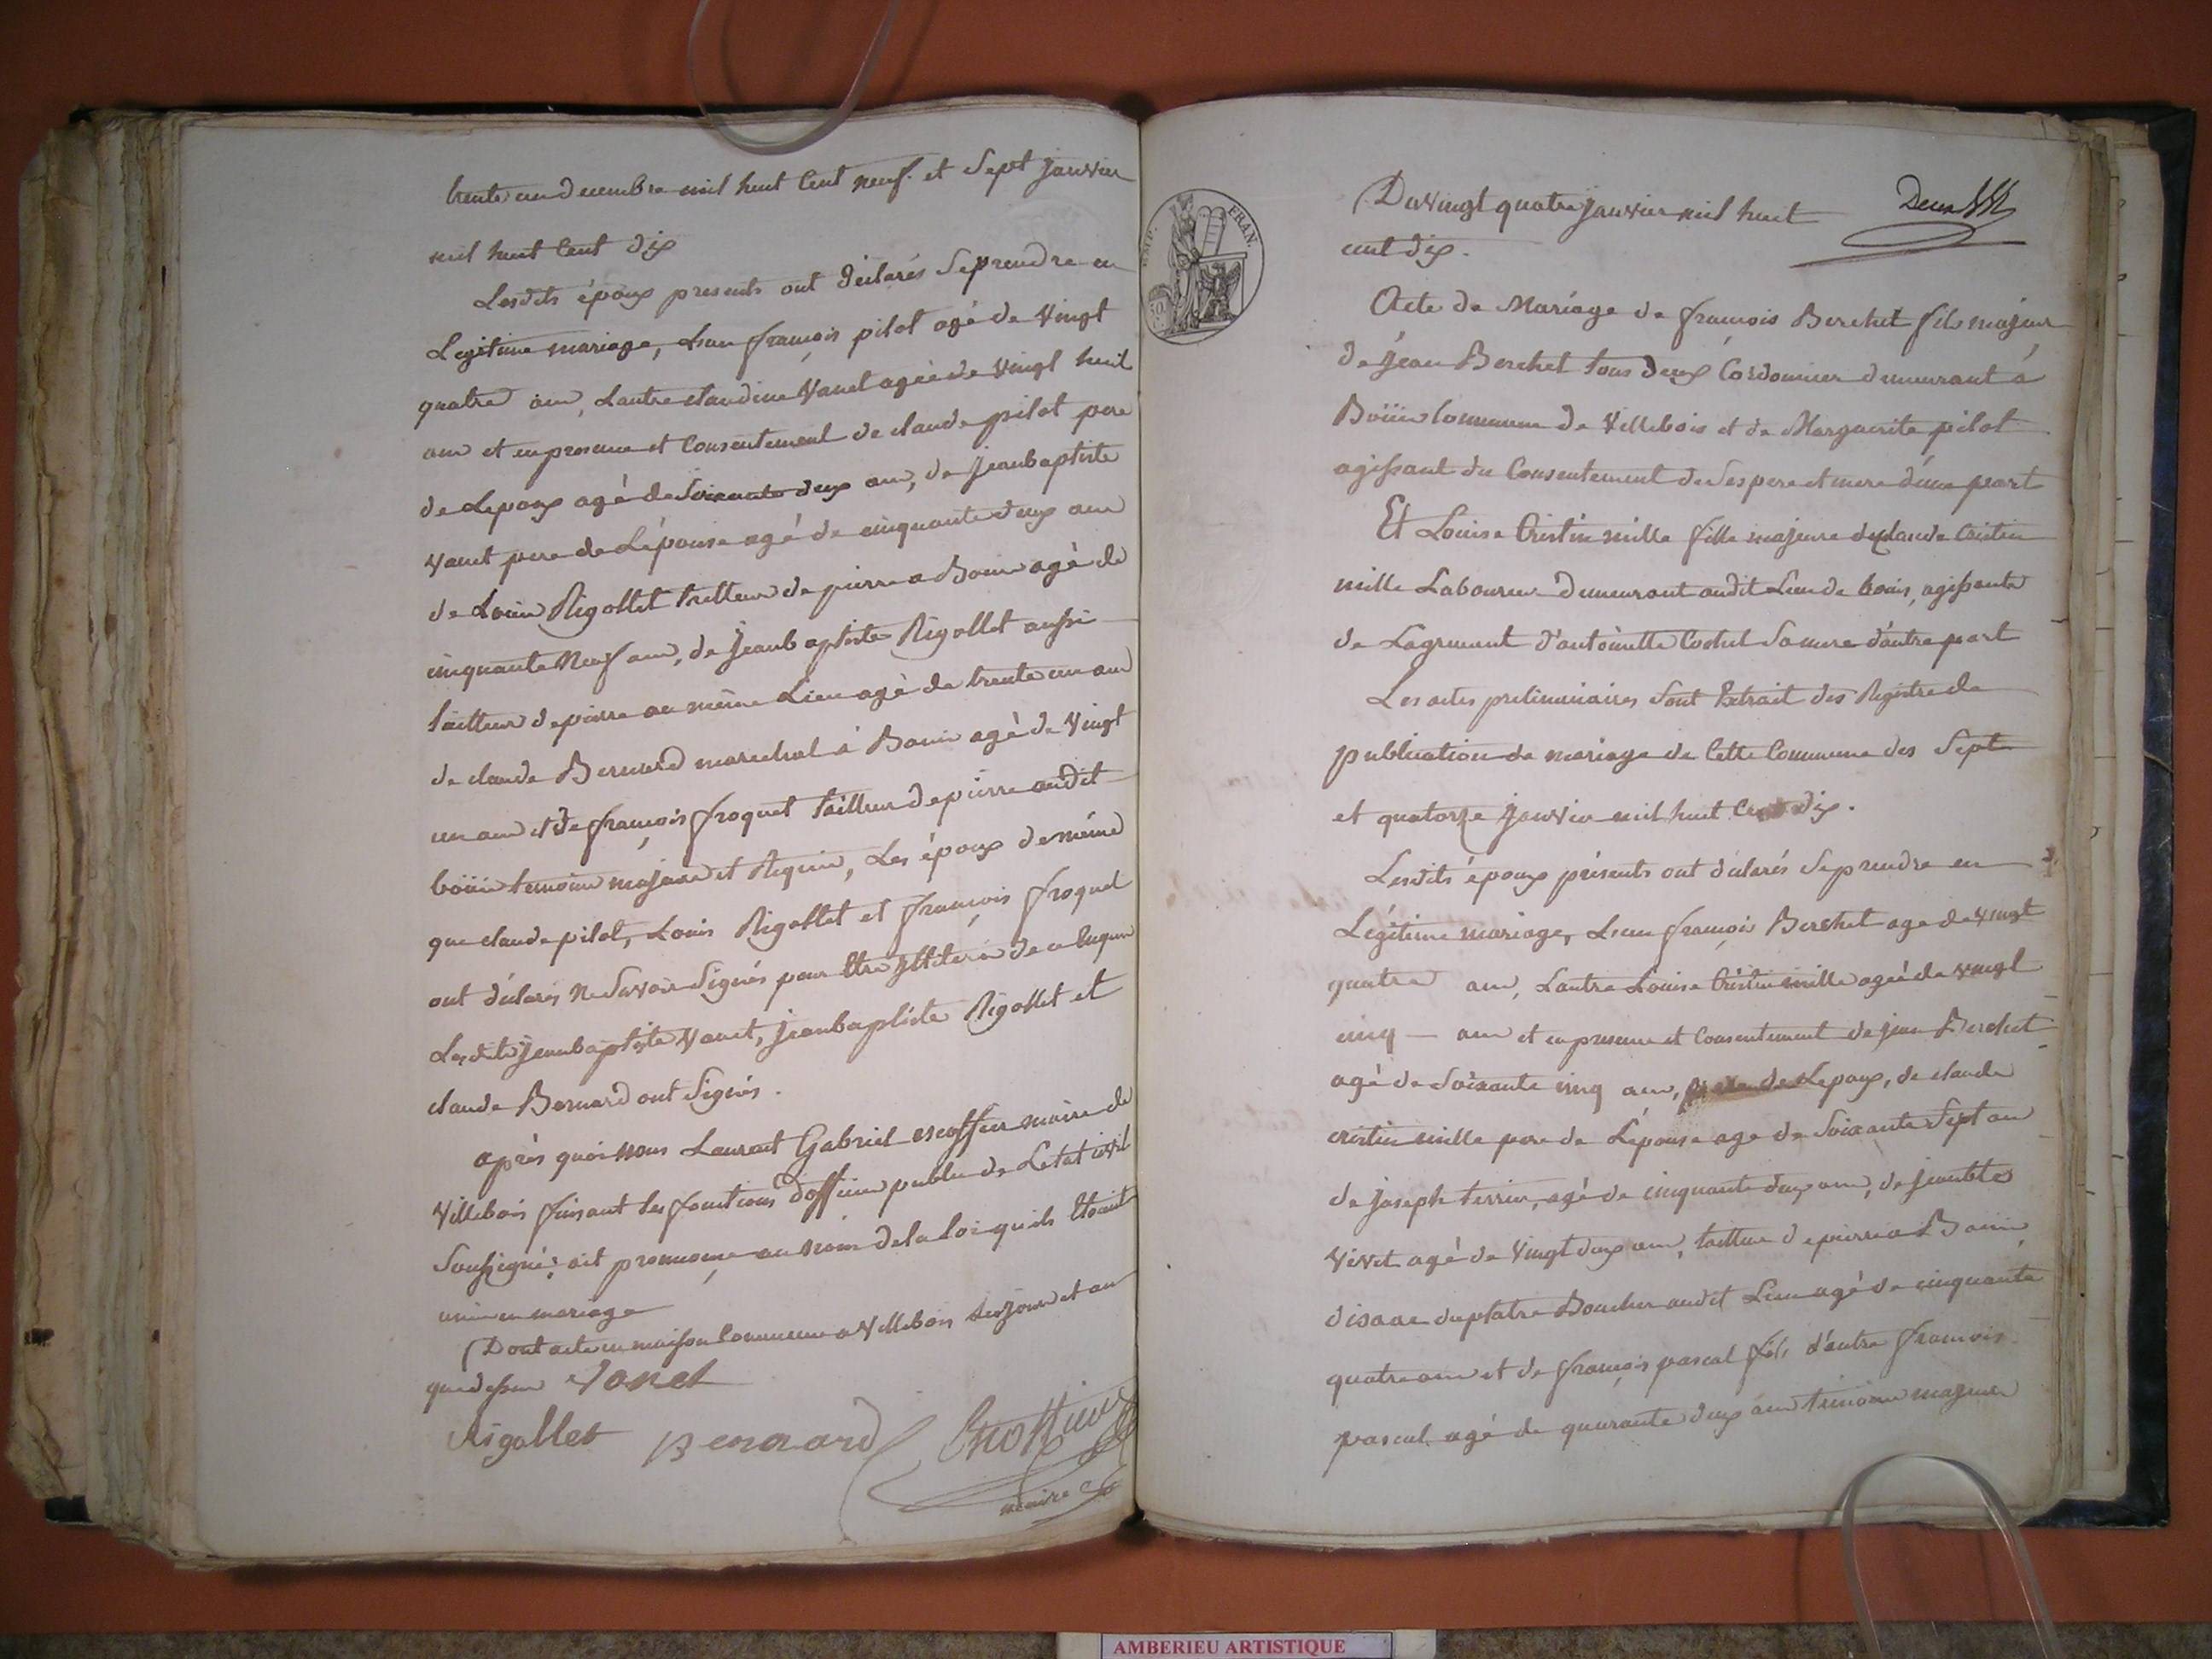 trente un decembre mil huit Cent neuf. et Sept janvier
mil huit Cent dix
Lesdits époux presents ont déclarés Se prendre en
Legitime mariage, L'un françois pilot agé de Vingt
quatre ans, Lautre claudine Vanet agée de Vingt huit
ans et en presence et Consentement de claude pilot pere
de Lepoux agé de Soixante deux ans, de jeanbaptiste
Vanet pere de Lépouse agé de cinquante deux ans
de Louis Rigollet tailleur de pierre a Bouis agé de
cinquante Neuf ans, de jeanbaptiste Rigollet aussi
tailleur de pierre au même Lieu agé de trente un ans
de claude Bernard marechal à Bouis agé de Vingt
un ans et de françois froquet tailleur de pierre audit
boüis temoins majeurs et Requis, Les époux de même
que claude pilot, Louis Rigollet et françois froquet
ont déclarés ne Savoir Signés pour Etre de ce Enquis
Lesdits jeanbaptiste Vanet, jeanbaptiste Rigollet et
claude Bernard ont Signés.
après quoi nous Laurent Gabriel escoffier maire de
Villebois faisant les fonctions d'officier public de Letat civil
Soussigné, ait prononcé au nom de la loi qu'ils Etoient
unis en mariage
Dont acte en maison Commune a Villebois Les jour et an
que dessus Vanet
Rigollet Bernard
maire
IMP. FRAN.
Du Vingt quatre janvier mil huit
cent dix.
Acte de Mariage de françois Berchet fils majeur
de Jean Berchet tous deux Cordonnier demeurant à
Boüis Commune de Villebois et de Marguerite pilot
agissant du Consentement de Ses pere et mere d'une part
Et Louise Cristin mille fille majeure de claude Cristin
mille Laboureur demeurant audit Lieu de bouis, agissante
de Lagrement d'antoinette Sa mere d'autre part
Les actes preliminaires Sont Extrait des Registre de
publication de mariage de Cette Commune des Sept
et quatorze janvier mil huit Cent dix.
Lesdits époux présents ont déclarés Se prendre en
Légitime mariage, L'un françois Berchet age de vingt
quatre ans, Lautre Louise Cristin mille agée de vingt
cinq — ans et en presence et Consentement de jean Berchet
agé de Soixante cinq ans, pere de Lepoux, de claude
cristin mille pere de Lépouse age de Soixante Sept ans
de joseph terrier, agé de cinquante deux ans, de jeanbte
Vivet agé de Vingt deux ans, tailleur de pierre a Bouis,
d'isaac duplatre Boucher audit Lieu agé de cinquante
quatre ans et de françois pascal fils d'autre françois
pascal agé de quarante deux ans temoins majeurs
AMBERIEU ARTISTIQUE